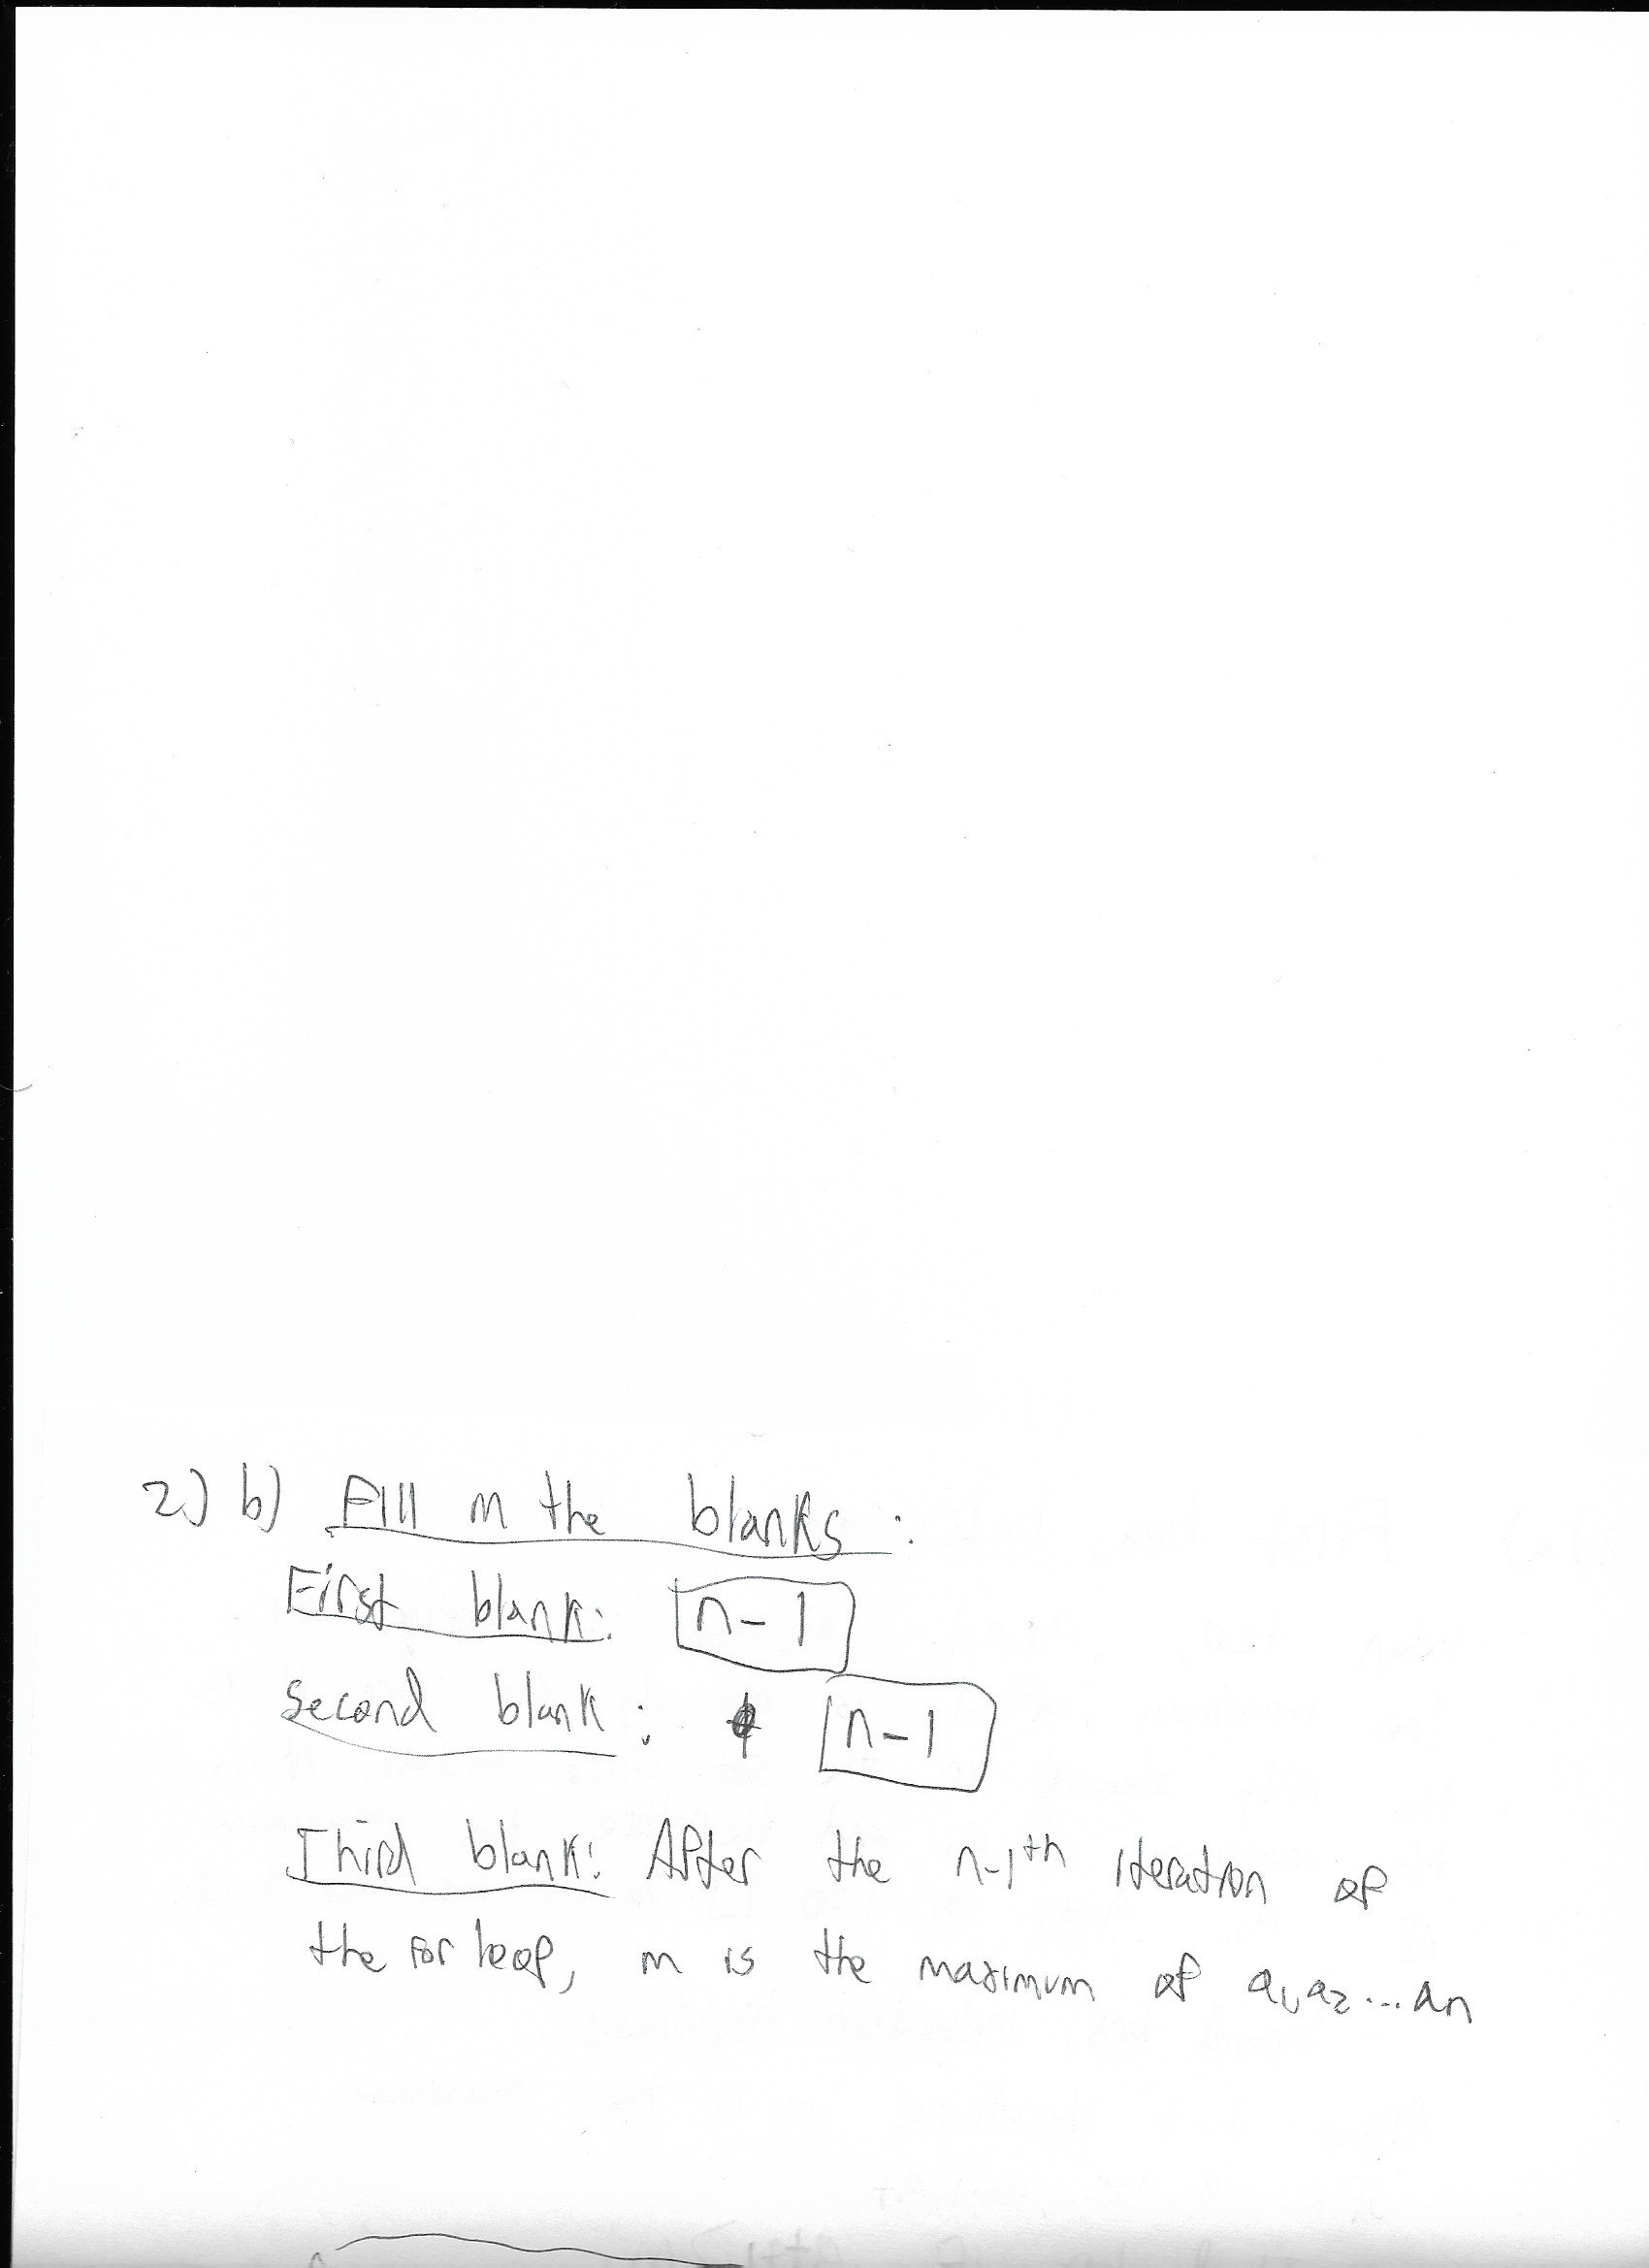 2) b) Fill in the blanks:
First blank: n-1
Second blank: n-1
Third blank: After the n-1th iteration of
the for loop, m is the maximum of a1, a2 ... an